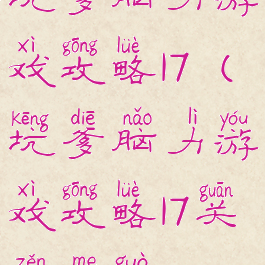 xì gōng lüè
戏攻略17（
kēng diē nǎo lì yóu
坑爹脑力游
xì gōng lüè guān
戏攻略17关
zěn me guò